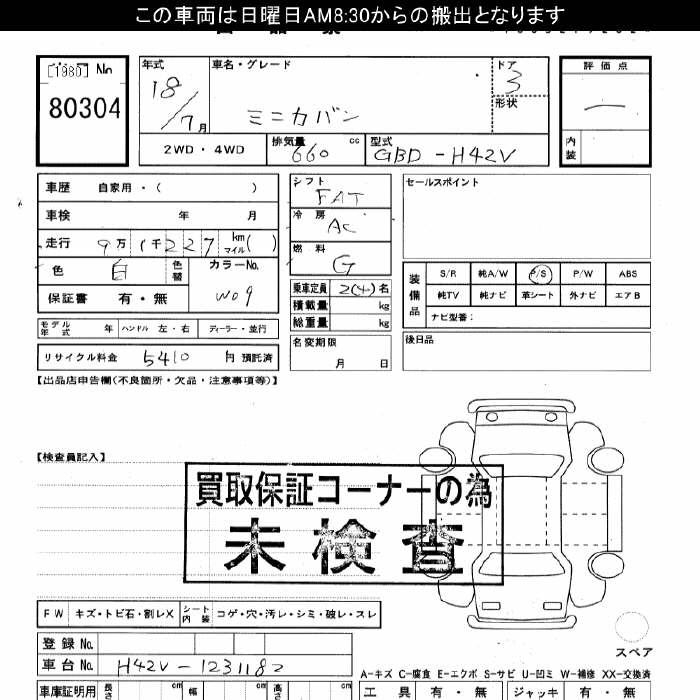 この車両は日曜日AM8:30からの搬出となります
[1980] No
80304
年式
18/7月
車名・グレード
ミニカバン
ドア
3
形状
評価点
—
内装
2WD・4WD
排気量 660 cc
型式 GBD-H42V
車歴 自家用・( )
車検 年 月
走行 9万1千227 km マイル( )
色 白 色替
カラーNo. W09
保証書 有・無
モデル年式 年 ハンドル 左・右 ディーラー・並行
リサイクル料金 5410 円 預託済
シフト FAT
冷房 AC
燃料 G
乗車定員 2(4)名
積載量 kg
総重量 kg
名変期限
月 日
セールスポイント
装備品
S/R 純A/W P/S P/W ABS
純TV 純ナビ 革シート 外ナビ エアB
ナビ型番:
後日品
【出品店申告欄(不良箇所・欠品・注意事項等)】
【検査員記入】
買取保証コーナーの為
未検査
FW キズ・トビ石・割レX シート内装 コゲ・穴・汚レ・シミ・破レ・スレ
スペア
登録No.
車台No. H42V-1231182
A-キズ C-腐食 E-エクボ S-サビ U-凹ミ W-補修 XX-交換済
車庫証明用 長さ cm 幅 cm 高さ cm
工具 有・無 ジャッキ 有・無